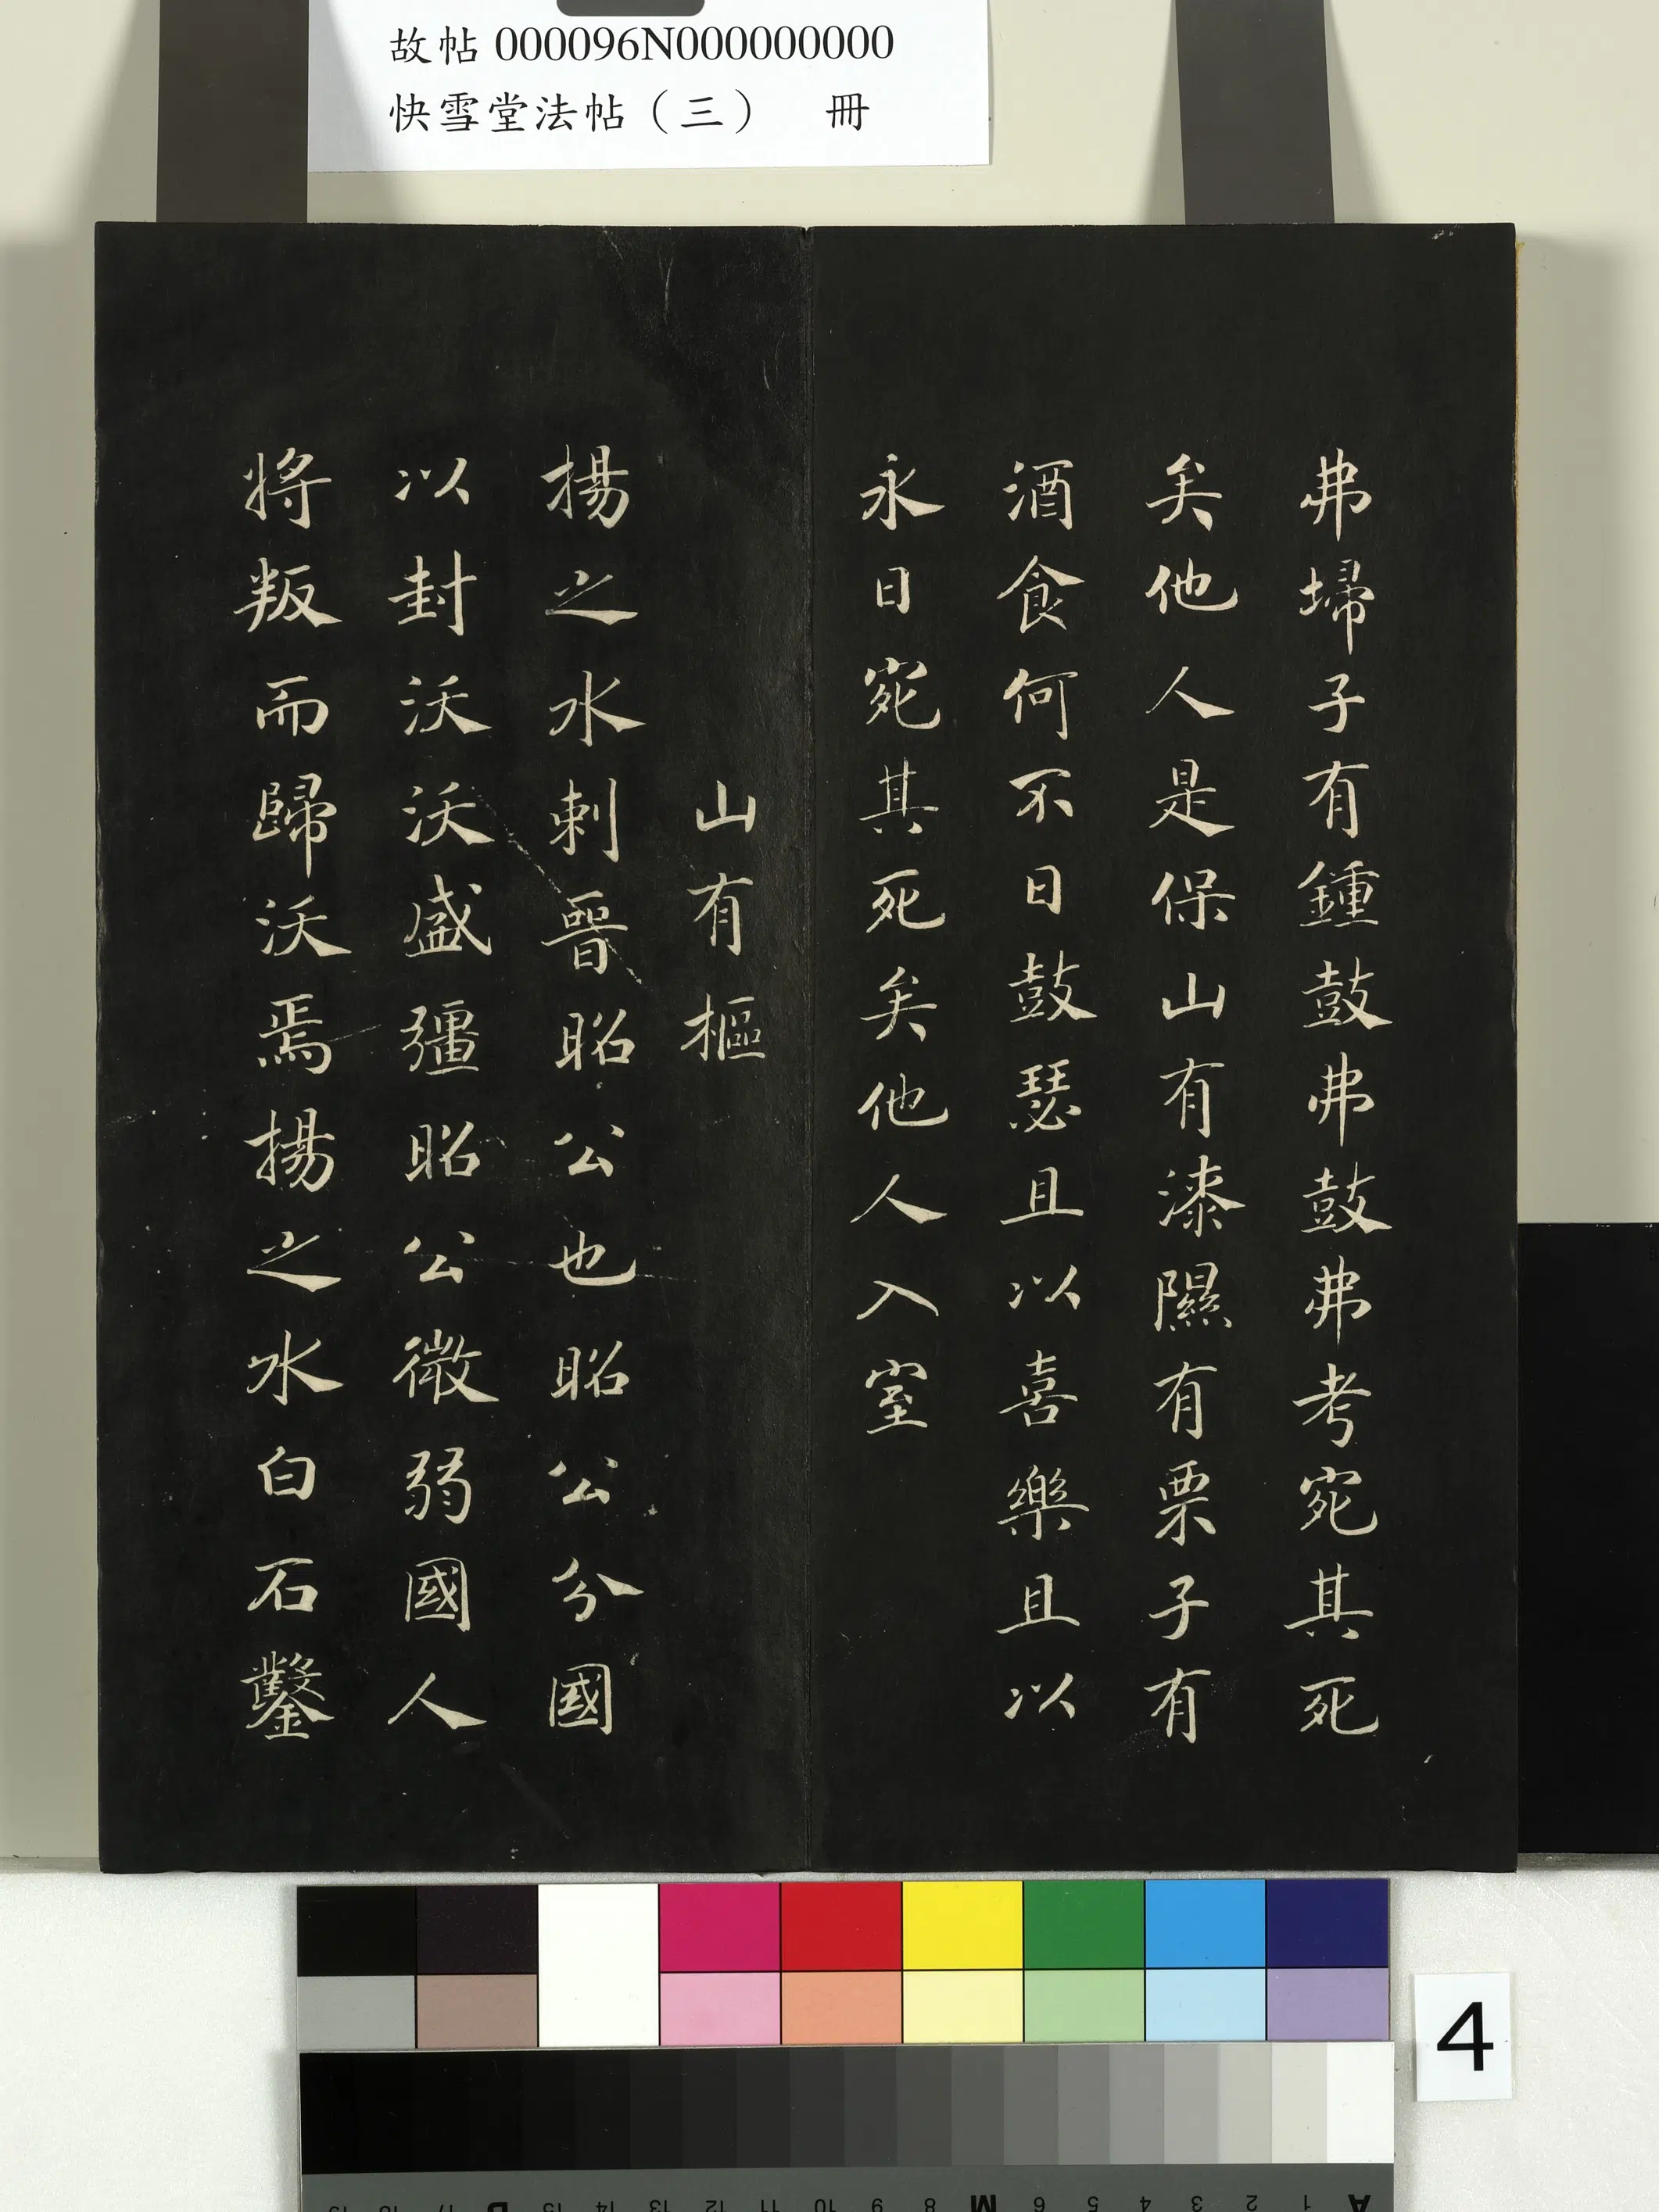 故帖 000096N000000000
快雪堂法帖（三）　冊
弗埽子有鍾鼓弗鼓弗考宛其死
矣他人是保山有漆隰有栗子有
酒食何不日鼓瑟且以喜樂且以
永日宛其死矣他人入室
山有樞
揚之水刺晉昭公也昭公分國
以封沃沃盛彊昭公微弱國人
將叛而歸沃焉揚之水白石鑿
4
A 1 2 3 4 5 6 M 8 9 10 11 12 13 14 15 B 17 18 19